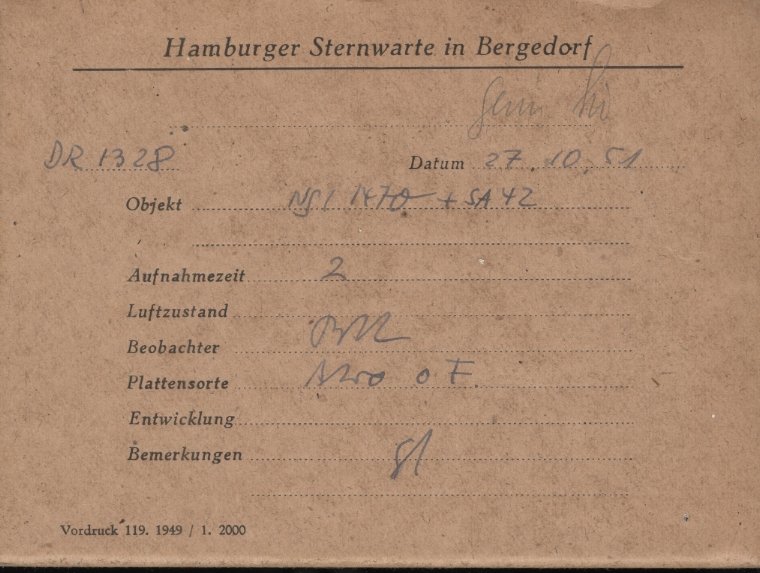 Hamburger Sternwarte in Bergedorf
DR 1328 Datum 27.10.51
Objekt 1470 + SA 42
Aufnahmezeit 2
Luftzustand
Beobachter
Plattensorte o. F.
Entwicklung
Bemerkungen
Vordruck 119. 1949 / 1. 2000